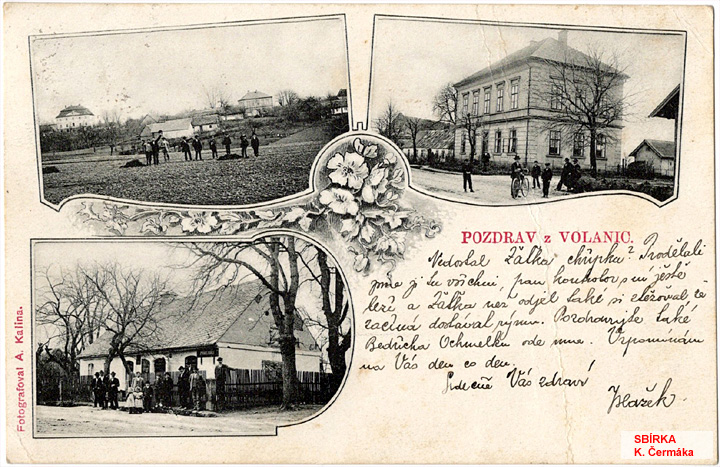 POZDRAV z VOLANIC.
Nedostal Žálka chřipku? Prodělali
jsme ji tu všichni, pan
leží, a Žálka než odjel také si stěžoval, že
začíná dostávat rýmu. Pozdravujte také
Bedřicha Ochmelku ode mne. Vzpomínám
na Vás den co den.
Srdečně Vás zdraví
Fotografoval A. Kalina.
SBÍRKA
K. Čermáka